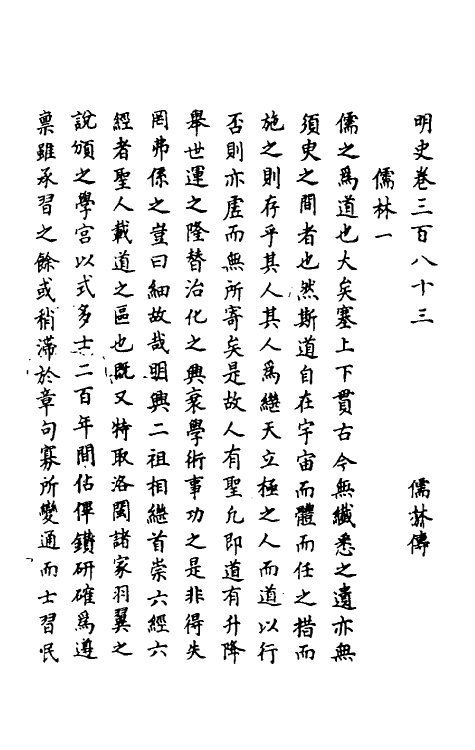 明史卷三百八十三　儒林傳
儒林一
儒之爲道也大矣塞上下貫古今無纖悉之遺亦無
須臾之間者也然斯道自在宇宙而體而任之措而
施之則存乎其人其人爲繼天立極之人而道以行
否則亦虛而無所寄矣是故人有聖凡即道有升降
舉世運之隆替治化之興衰學術事功之是非得失
罔弗係之豈曰細故哉明興二祖相繼首崇六經六
經者聖人載道之區也既又特取洛閩諸家羽翼之
說頒之學宮以式多士二百年間佔俾鑽研確爲遵
稟雖承習之餘或稍滯於章句寡所變通而士習民